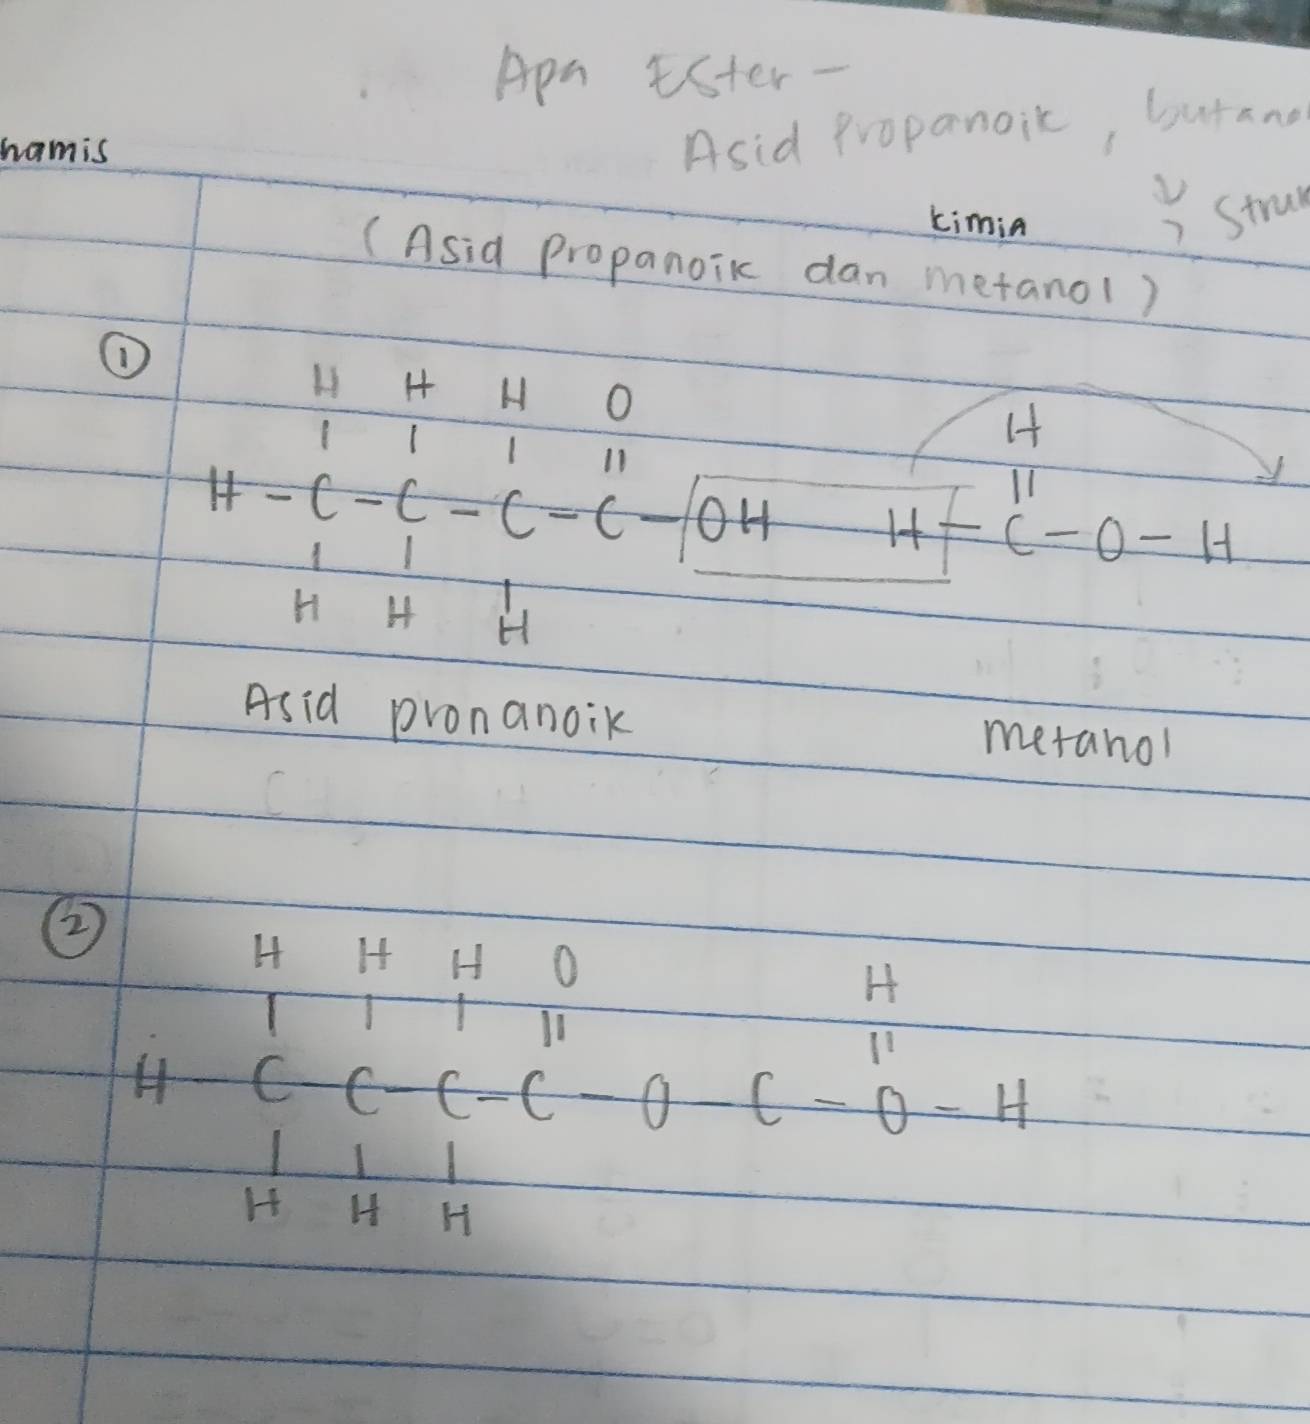 Apa Ester -
Asid Propanoik, butano
hamis
kimia
; Struk
(Asid propanoik dan metanol)
①
H H H O H
| | | || ||
H - C - C - C - C - OH H - C - O - H
| | |
H H H
Asid pronanoik metanol
②
H H H O H
| | | || ||
H - C - C - C - C - O - C - O - H
| | |
H H H